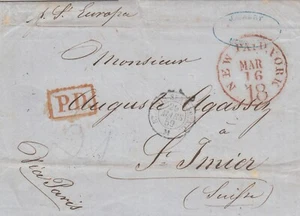 p. St. Europa
NEW PAID YORK
MAR
16
18
Monsieur
P.D.
Auguste Agassiz
à
St. Imier
Via Paris
(Suisse)